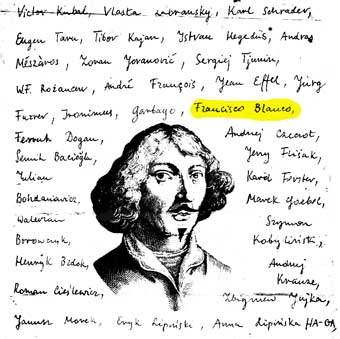 Victor Kubal, Vlasta Zábranský, Karl Schrader,
Eugen Taru, Tibor Kajan, Istvan Hegedüs, Andras
Mészáros, Zoran Jovanović, Sergiej Tjunin,
W.F. Rożancew, André François, Jean Effel, Jürg
Furrer, Ironimus, Garbayo, Francisco Blanco,
Ferruh Dogan, Andrzej Czeczot,
Semih Jerzy Flisak,
Julian Karol Ferster,
Bohdanowicz, Marek Goebel,
Walerian Szymon
Borowczyk, Kobyliński,
Henryk Andrzej
Krauze,
Roman Cieślewicz, Zbigniew Jujka,
Janusz Eryk Lipiński, Anna Lipińska HA-GA,